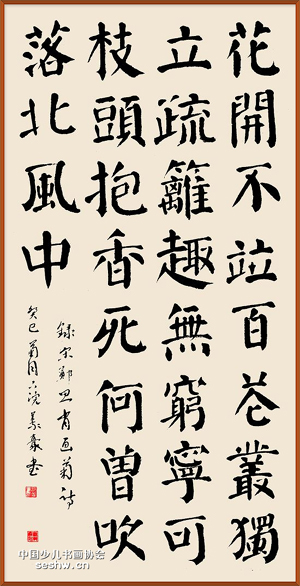 花開不竝百花叢獨
立疏籬趣無窮寧可
枝頭抱香死何曾吹
落北風中
錄宋鄭思肖画菊詩
癸巳菊月书
中国少儿书画协会
seshw.cn